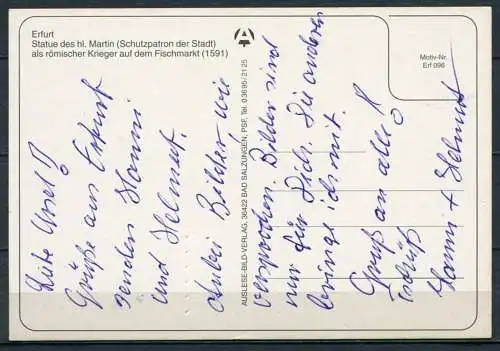 Erfurt
Statue des hl. Martin (Schutzpatron der Stadt)
als römischer Krieger auf dem Fischmarkt (1591)
Motiv-Nr.
Erf 096
AUSLESE-BILD-VERLAG, 36422 BAD SALZUNGEN, PSF, Tel. 03695/2125
Liebe Ursel!
Grüße aus Erfurt
senden Hanni
und Helmut.
Anbei Bilder wie
versprochen. Bilder sind
nur für Dich. Die anderen
bringe ich mit.
Gruß an alle!
Tschüß
Hanni + Helmut